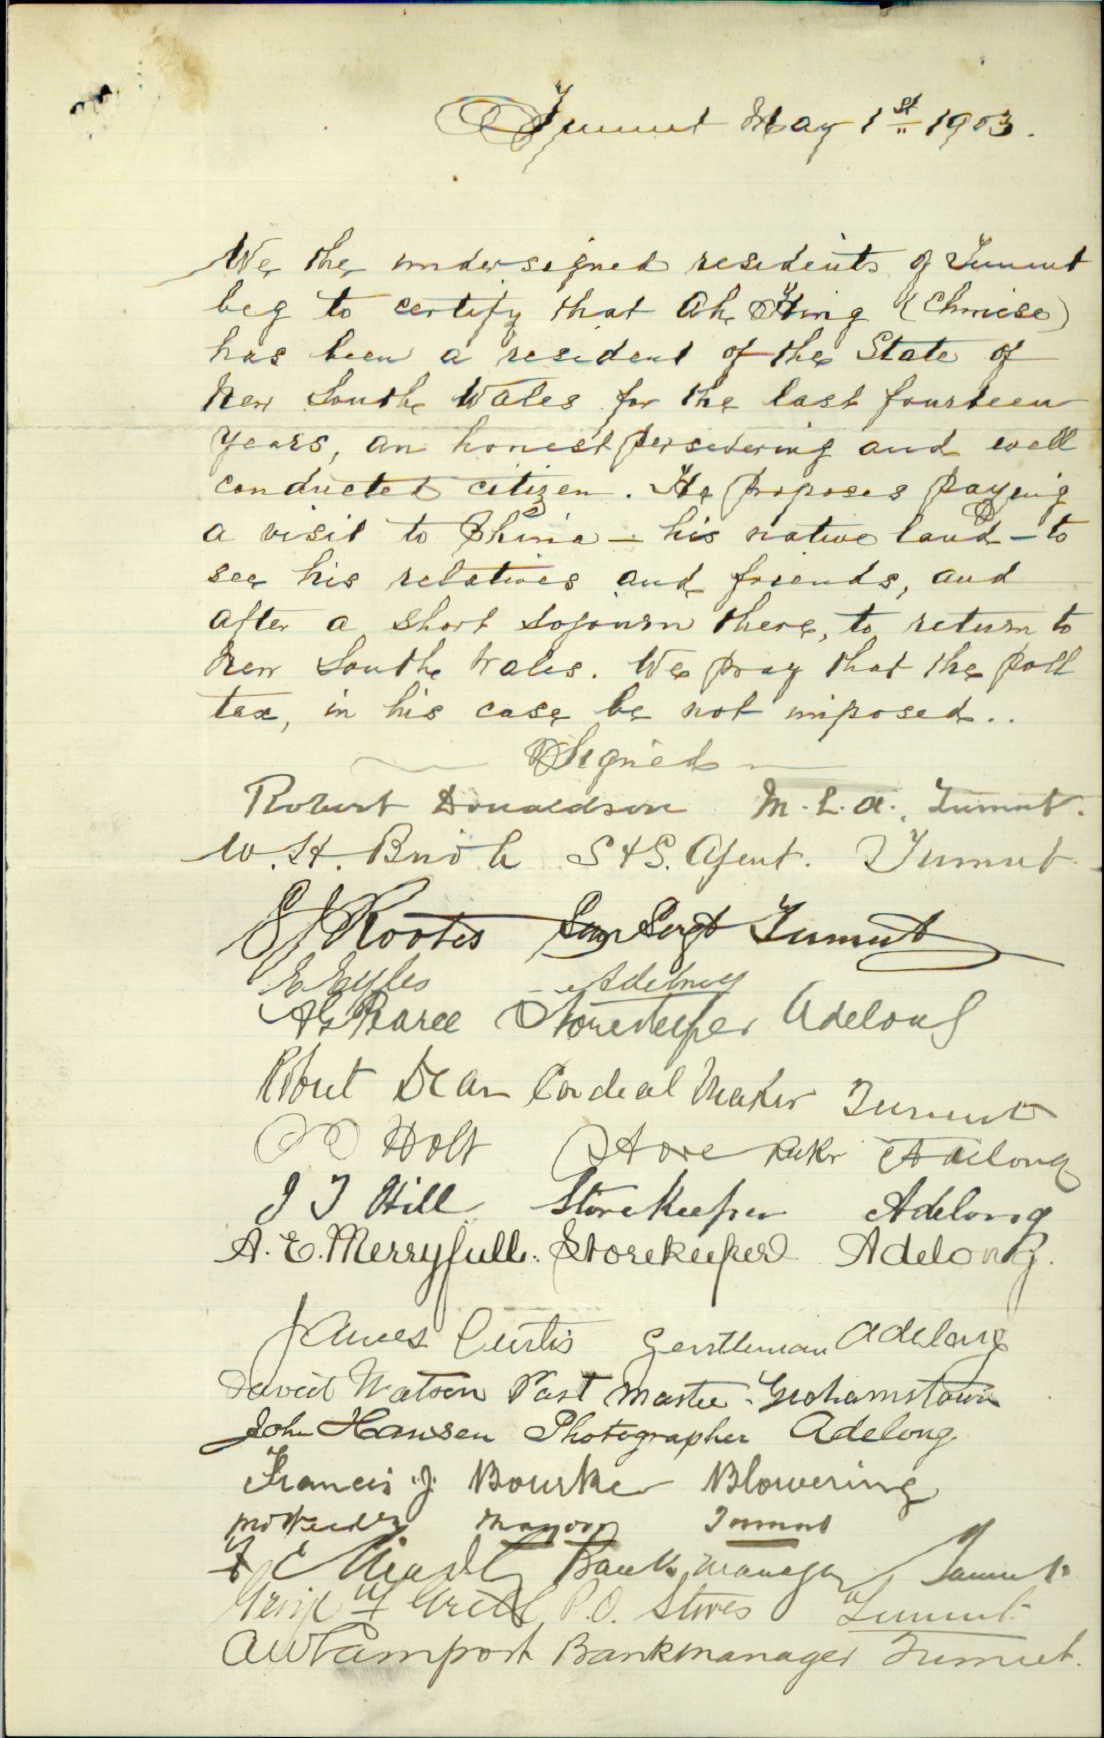 Tumut May 1st 1903.
We the undersigned residents of Tumut
beg to certify that Ah Hing (Chinese)
has been a resident of the State of
New South Wales for the last fourteen
years, an honest persevering and well
conducted citizen. He proposes paying
a visit to China – his native land – to
see his relatives and friends, and
after a short sojourn there, to return to
New South Wales. We pray that the poll
tax, in his case be not imposed..
Signed
Robert Donaldson M.L.A., Tumut.
W. H. S & G. Agent. Tumut
Rootes Sergt Tumut
E Eyles Adelong
Storekeeper Adelong
Robert Dean Cordial Maker Tumut
Holt Storekeeper Adelong
J T Hill Storekeeper Adelong
A. E. Merryfull. Storekeeper Adelong.
James Curtis Gentleman Adelong
David Watson Post Master. Grahamstown
John Hansen Photographer Adelong
Francis J. Bourke Blowering
Mayor Tumut
Bank Manager Tumut
P.O. Stores Tumut
Bankmanager Tumut.